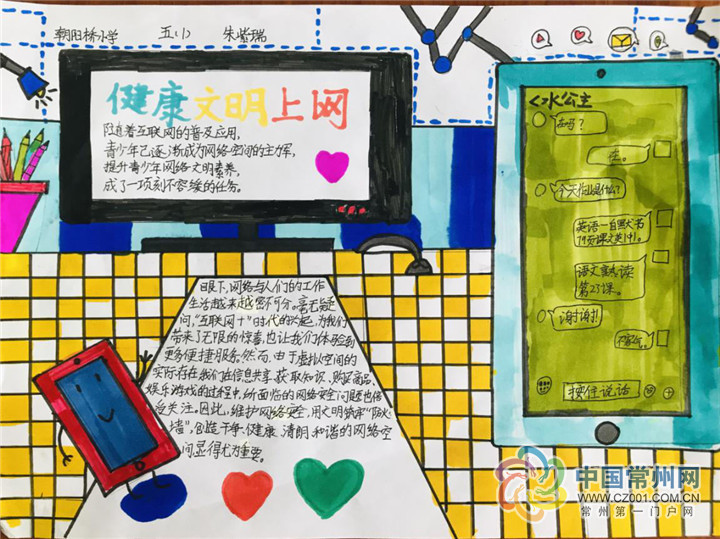 朝阳桥小学 五(1) 朱紫瑞
健康文明上网
随着互联网的普及应用,
青少年已逐渐成为网络空间的主力军,
提升青少年网络文明素养,
成了一项刻不容缓的任务。
眼下,网络与人们的工作
生活越来越密不可分。毫无疑
问,“互联网+”时代的兴起,为我们
带来了无限的惊喜,也让我们体验到
更多便捷服务。然而,由于虚拟空间的
实际存在,我们在信息共享、获取知识、购买商品、
娱乐游戏的过程中,所面临的网络安全问题也备
受关注。因此,维护网络安全,用文明筑牢“防火
墙”,创造干净、健康、清朗和谐的网络空
间显得尤为重要。
<水公主
在吗?
在。
今天作业是什么?
英语一自默书
19页课文英译1。
语文熟读
第23课。
谢谢!
不客气。
按住说话
中国常州网
WWW.CZ001.COM.CN
常州第一门户网